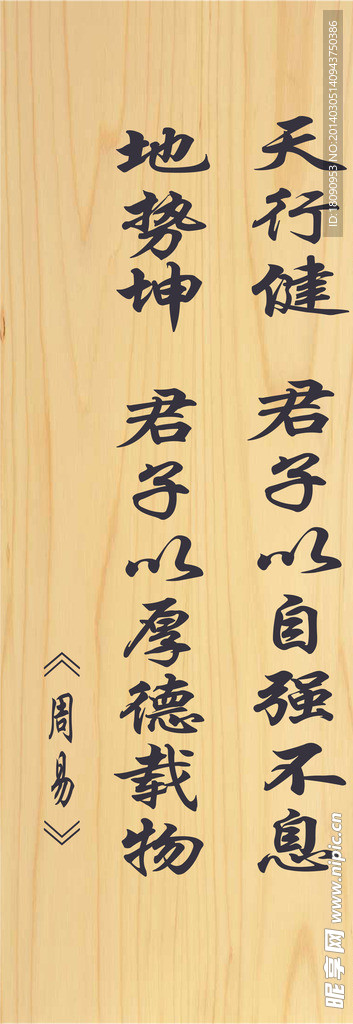 天行健 君子以自强不息
地势坤 君子以厚德载物
《周易》
ID:18090953 NO:20140305140943750386
昵享网 www.nipic.cn